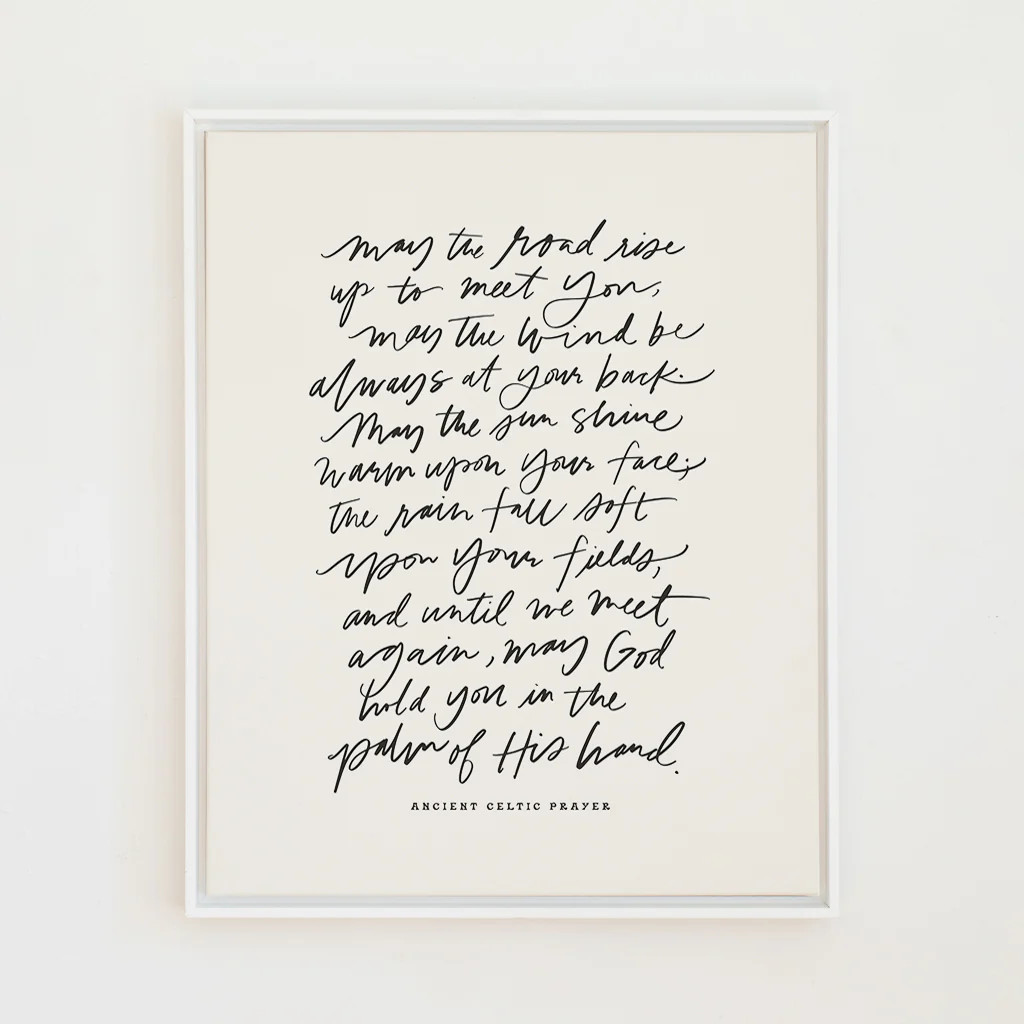 may the road rise
up to meet you,
may the wind be
always at your back.
May the sun shine
warm upon your face;
the rain fall soft
upon your fields,
and until we meet
again, may God
hold you in the
palm of His hand.
ANCIENT CELTIC PRAYER